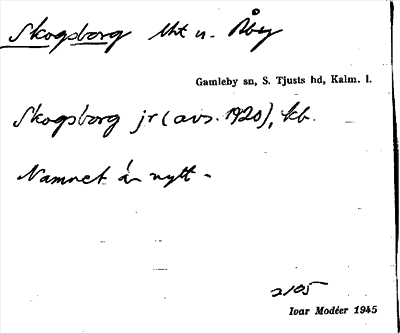 Skogsborg lht u. Åby
Gamleby sn, S. Tjusts hd, Kalm. l.
Skogsborg jr (avs. 1920), kb.
Namnet är nytt.
2105
Ivar Modéer 1945